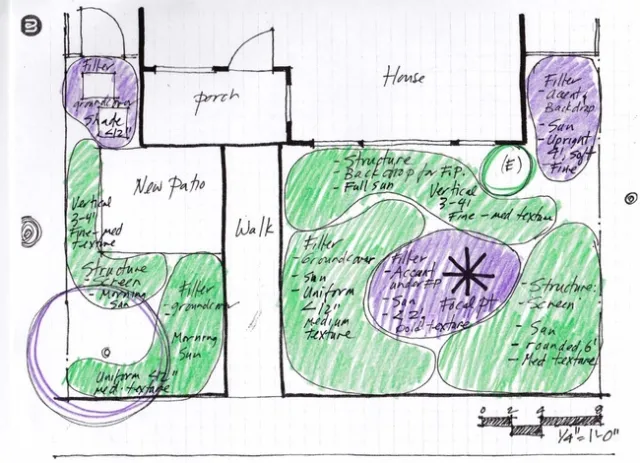 Filter
groundcover
Shade
<12"
Porch
House
Filter
- Accent,
Backdrop
- Sun
- Upright
4', soft
Fine
- Structure
- Backdrop for F.P.
- Full sun
Vertical
3-4'
Fine-med texture
(E)
New Patio
Walk
Vertical
3-4'
Fine-med
texture
Structure
- Screen
- Morning
Sun
Filter
- groundcover
- Morning
Sun
Uniform <12"
med. texture
Filter
- Groundcover
- Sun
- Uniform
<12"
medium
texture
Filter
- Accent
under FP
- Sun
- <2',
bold texture
Focal pt
- Structure:
- Screen
- Sun
- rounded, 6'
- Med texture
0 2 4 8
1/4"=1'-0"